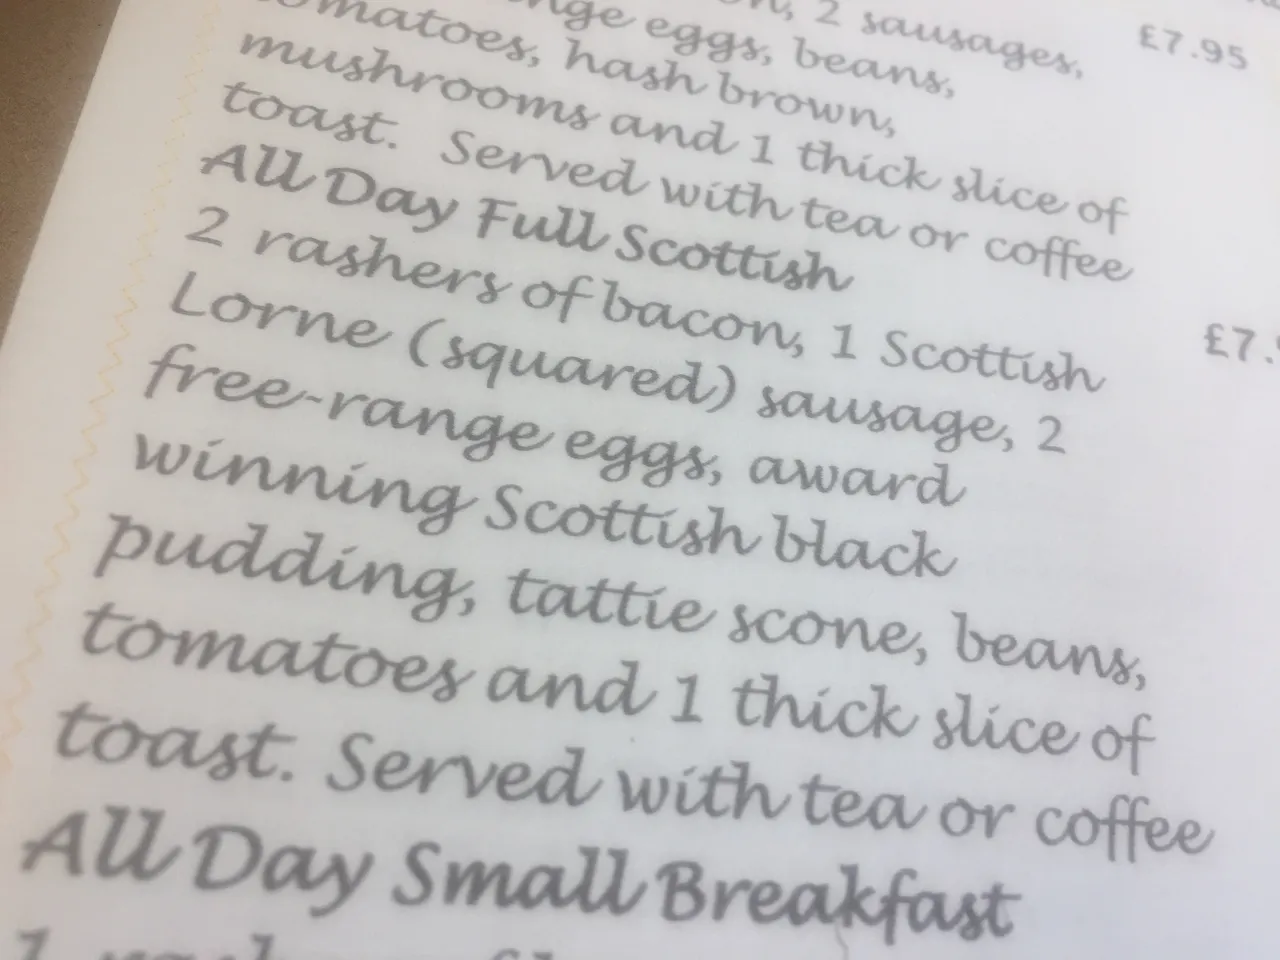 2 sausages, £7.95
eggs, beans,
tomatoes, hash brown,
mushrooms and 1 thick slice of
toast. Served with tea or coffee
All Day Full Scottish
2 rashers of bacon, 1 Scottish £7.
Lorne (squared) sausage, 2
free-range eggs, award
winning Scottish black
pudding, tattie scone, beans,
tomatoes and 1 thick slice of
toast. Served with tea or coffee
All Day Small Breakfast
1